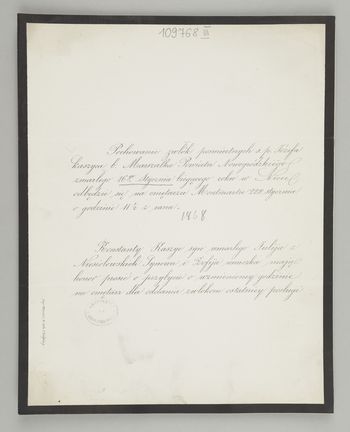 109768 III
Pochowanie zwłok pośmiertnych ś. p. Józefa
Kaszyca b. Marszałka Powiatu Nowogródzkiego
zmarłego 16go Stycznia bieżącego roku w Nicei,
odbędzie się na cmętarzu Montmartre 22go stycznia
o godzinie 11½ z rana.
1868
Konstanty Kaszyc syn zmarłego Julija z
Niesiołowskich Synowa i Zofija wnuczka mają
honor prosić o przybycie o wzmienionej godzinie
na cmętarz dla oddania zwłokom ostatniej posługi